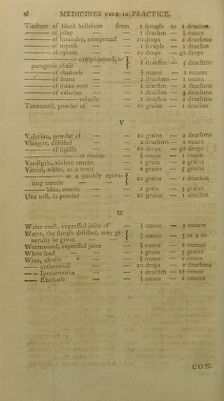 28 MEDICINES USED IN PRACTICE.
Tincture of black hellebore from 1 scruple to 1 drachm
——— of jalap — 1 drachm — ½ ounce
——— of laudanum, compound — 20 drops — 2 drachms
——— of myrrh — 1 scruple — 1 drachm
——— of opium — 10 drops — 40 drops
——— camphorated, or }
paregoric elixir } 1 drachm — 3 drachms
——— of rhubarb — ½ ounce — 2 ounces
——— of senna — 2 drachms — 1 ounce
——— of snake root — 1 drachm — 2 drachms
——— of valerian — 1 drachm — 3 drachms
——— volatile — 1 drachm — 2 drachms
Tormentil, powder of — 10 grains — 1 drachm
V
Valerian, powder of — 20 grains — 2 drachms
Vinegar, distilled — 2 drachms — 1 ounce
——— of squills — 10 drops — 50 drops
——— as emetic — ½ ounce — 1 ounce
Verdigris, violent emetic — 1 grain — 2 grains
Vitriol, white, as a tonic — 2 grains — 5 grains
——— as a speedily opera- }
ting emetic } 20 grains — 1 drachm
——— blue, emetic — 1 grain — 3 grains
Uva ursi, in powder — 20 grains — 1 drachm
W
Water cress, expressed juice of — 1 ounce — 2 ounces
Water, the simple distilled, may ge- }
nerally be given } 1 ounce — 3 or 4 oz.
Wormwood, expressed juice — ½ ounce — 2 ounces
White lead — 1 grain — 5 grains
Wine, aloetic — ½ ounce — 1 ounce
—— antimonial — 10 drops — 2 drachms
—— Ipecacuanha — 1 drachm — 1½ ounce
—— Rhubarb — ½ ounce — 2 ounces
CON-